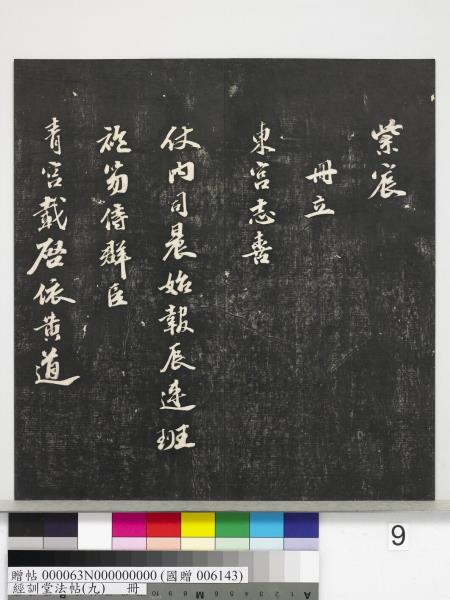 紫宸
冊立
東宮志喜
仗内司晨始報辰連班
袍笏侍群臣
青宮載啓依黃道
9
贈帖 000063N000000000 (國贈 006143)
經訓堂法帖(九) 冊